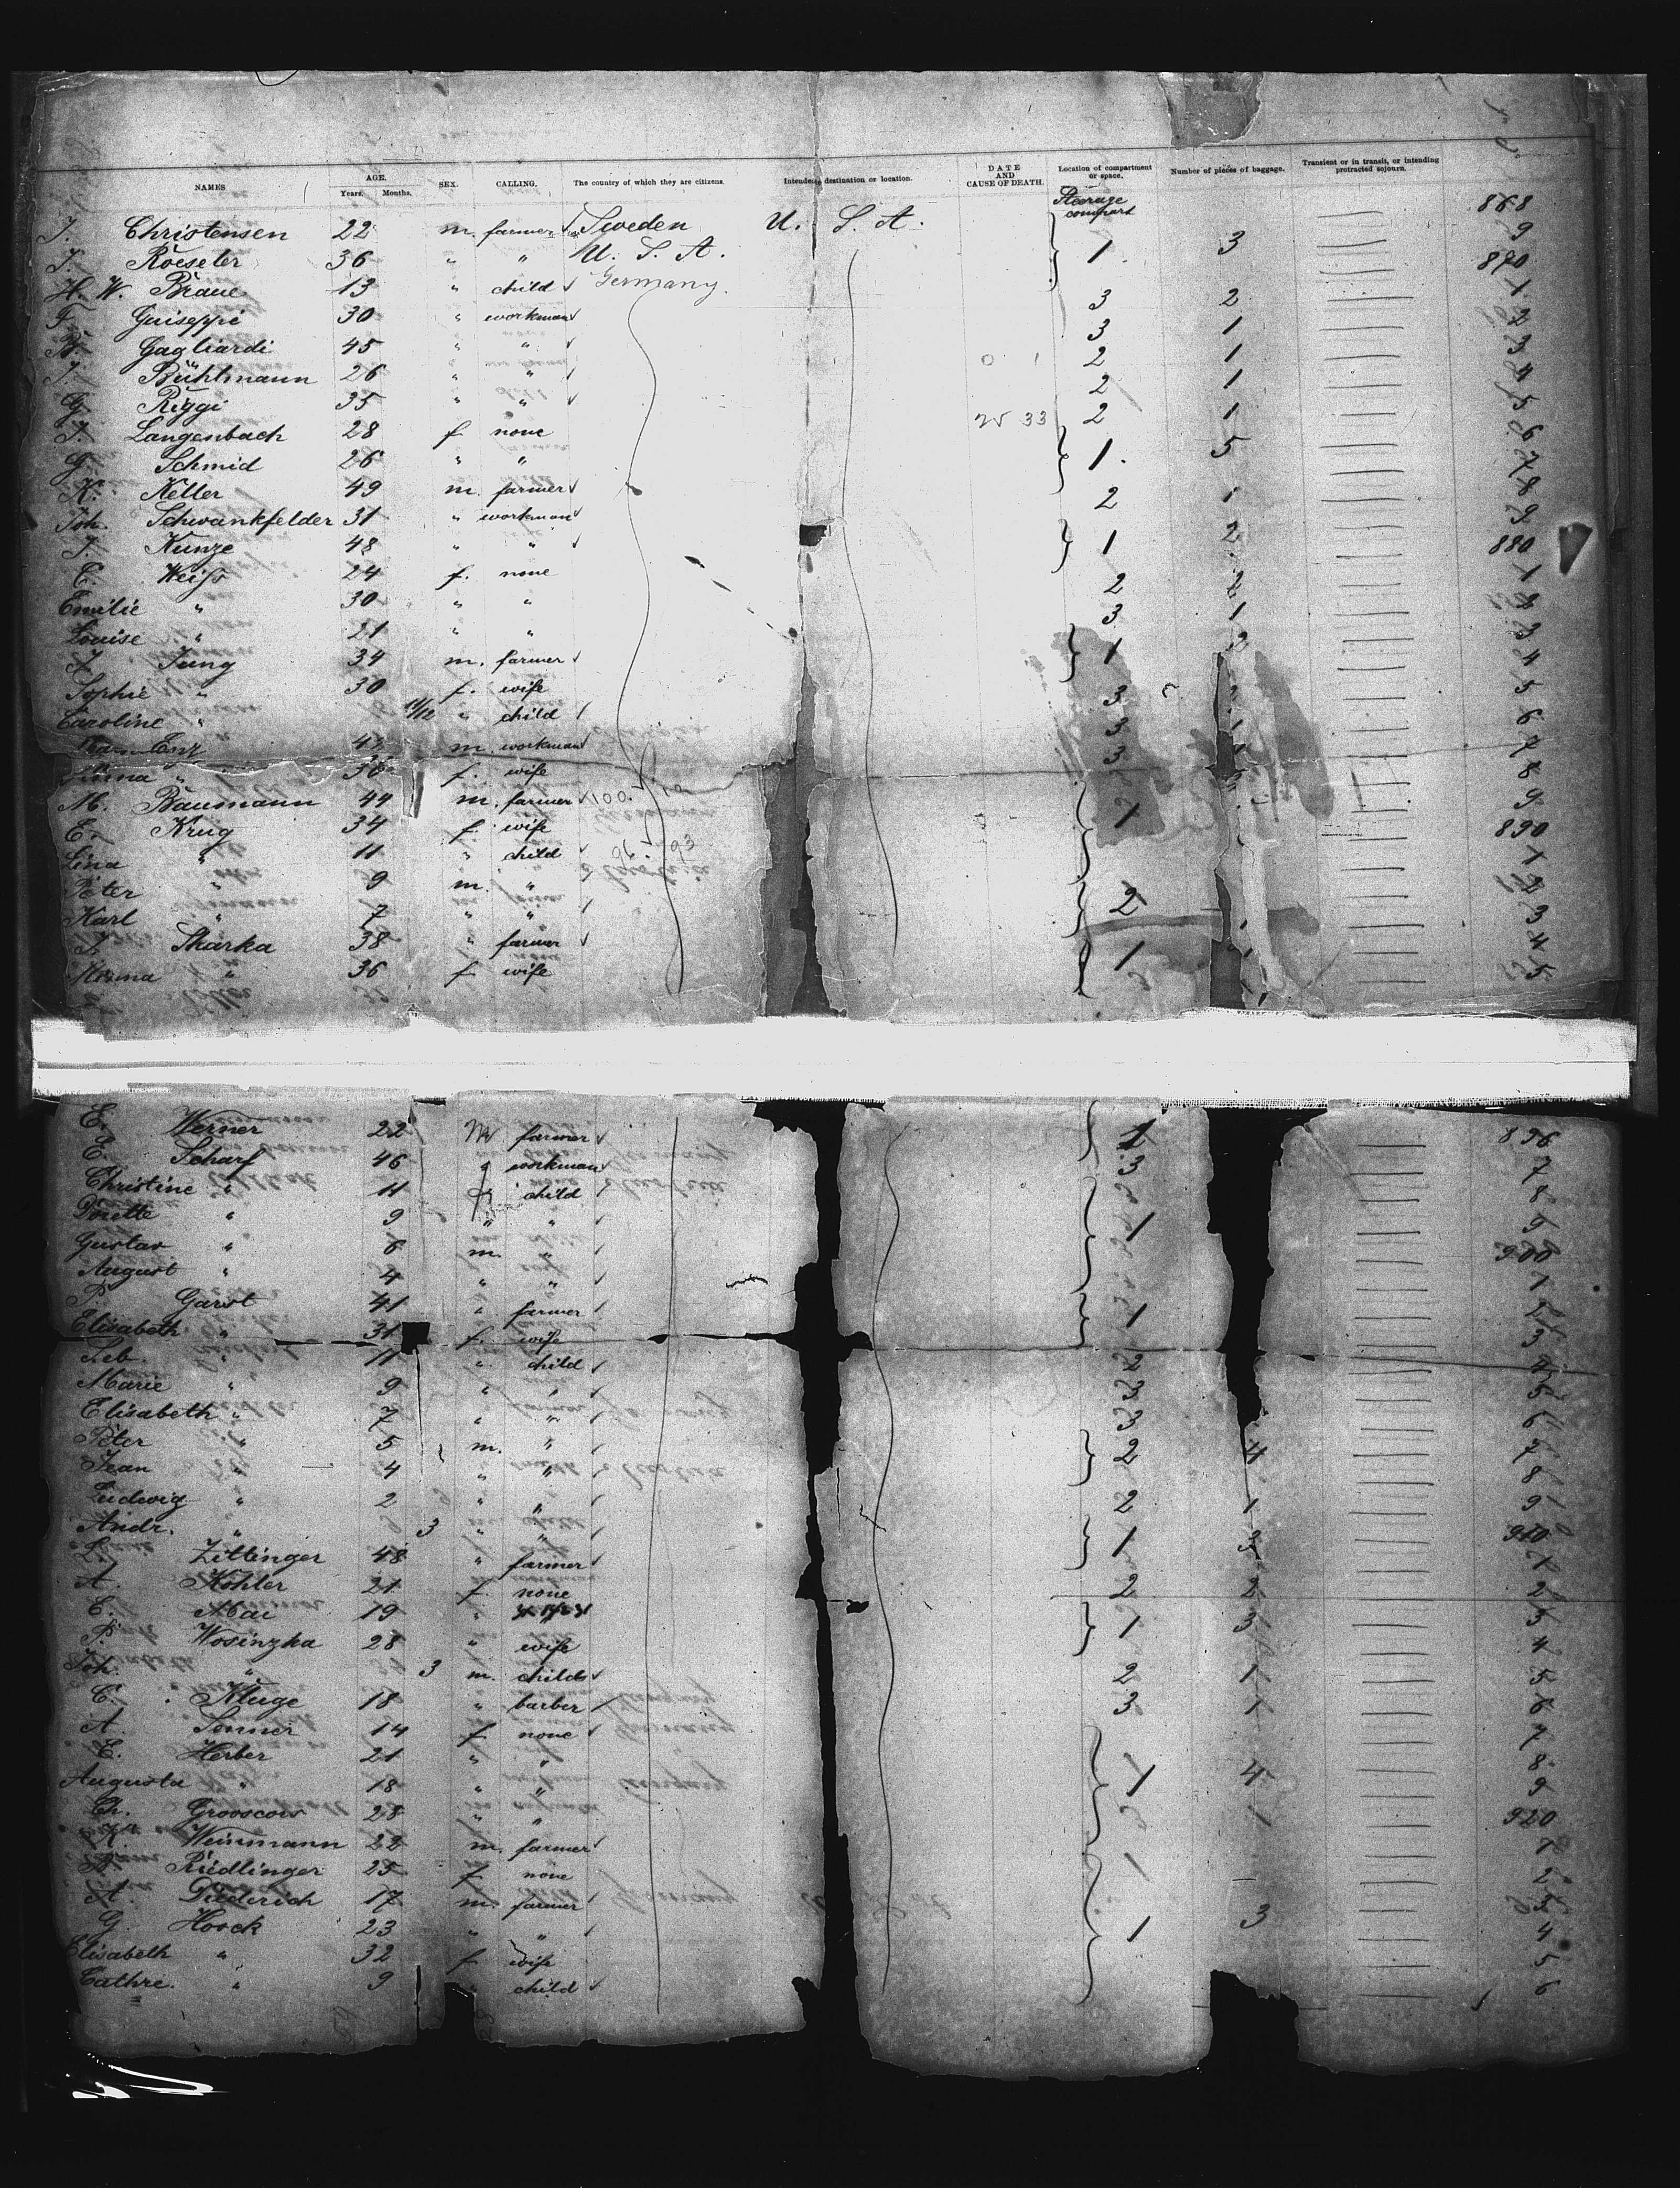 NAMES AGE. Years. Months. SEX. CALLING. The country of which they are citizens. Intended destination or location. DATE AND CAUSE OF DEATH. Location of compartment or space. Number of pieces of baggage. Transient or in transit, or intending protracted sojourn.
Steerage compart
J. Christensen 22 m. farmer Sweden U. S. A. 868
J. Roeseler 36 " " U. S. A. 1 3 9
H. W. Braue 13 " child Germany 870
F. Guiseppi 30 " workman 3 2 1
Gagliardi 45 " " 3 1 2
J. Bühlmann 26 " " 2 1 3
G. Riggi 35 " " 2 1 4
J. Langenbach 28 f none W 33 2 1 5
G. Schmid 26 " " 1 5 6
K. Keller 49 m. farmer 7
Joh. Schwankfelder 31 " workman 2 1 8
J. Kunze 48 " " 9
C. Weiss 24 f. none 1 2 880
Emilie " 30 " " 2 2 1
Louise " 21 " " 3 1 2
J. Jung 34 m. farmer 1 3
Sophie " 30 f. wife 4
Caroline " 11/12 " child 3 5
Enz m. workman 3 1 6
" 36 f. wife 3 7
M. Baumann 44 m. farmer 8
E. Krug 34 f. wife 1 9
Lina " 11 " child 96.93 890
Peter " 9 m. " 1
Karl " 7 " " 2 2
J. Skarka 38 " farmer 3
" 36 f wife 1 4
5
E. Werner 22 M farmer 1 896
E. Scharf 46 " workman 3 7
Christine " 11 f child 8
Dorette " 9 " " 1 9
Gustav " 6 m. " 900
August " 4 " " 1
P. Garst 41 " farmer 1 2
Elisabeth " 31 f. wife 3
Seb. " 11 " child 2 4
Marie " 9 " " 3 5
Elisabeth " 7 " " 3 6
Peter " 5 m. " 2 4 7
Jean " 4 " " 8
Ludwig " 2 " " 2 1 9
Andr. " 3 " " 1 3 910
Zittinger 48 " farmer 1
A. Köhler 21 f. none 2 2 2
E. Mai 19 " 1 3 3
P. Wosinzka 28 " wife 4
Joh. " 3 m. child 2 1 5
C. Kluge 18 " barber 3 1 6
A. Senner 14 f none 7
E. Herber 21 " " 1 4 8
Augusta " 18 " " 9
Ch. Grooscors 28 " " 1 920
K. Weinmann 22 m. farmer 1
Riedlinger 25 f none 1 2
A. Diederich 17 m. farmer 3
G. Hoock 23 " " 1 3 4
Elisabeth " 32 f wife 5
Cathre. " 9 " child 6